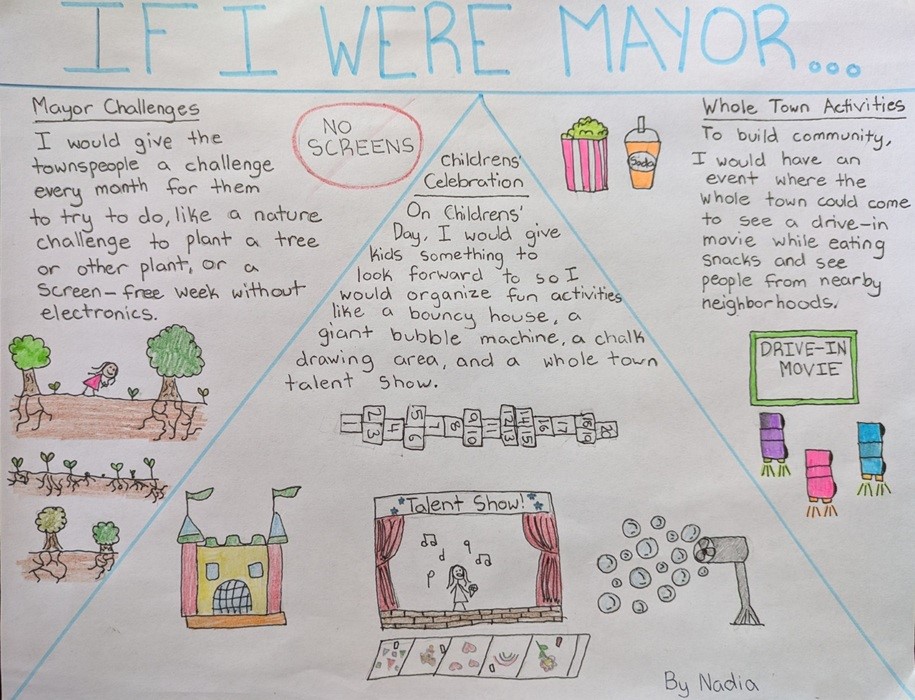 IF I WERE MAYOR...
Mayor Challenges
I would give the
townspeople a challenge
every month for them
to try to do, like a nature
challenge to plant a tree
or other plant, or a
screen-free week without
electronics.
NO
SCREENS
Childrens'
Celebration
On Childrens'
Day, I would give
kids something to
look forward to so I
would organize fun activities
like a bouncy house, a
giant bubble machine, a chalk
drawing area, and a whole town
talent show.
2 3 4 5 6 7 8 9 10 11 12 13 14 15 16 17 18 19 20
Talent Show!
Soda
Whole Town Activities
To build community,
I would have an
event where the
whole town could come
to see a drive-in
movie while eating
snacks and see
people from nearby
neighborhoods.
DRIVE-IN
MOVIE
By Nadia